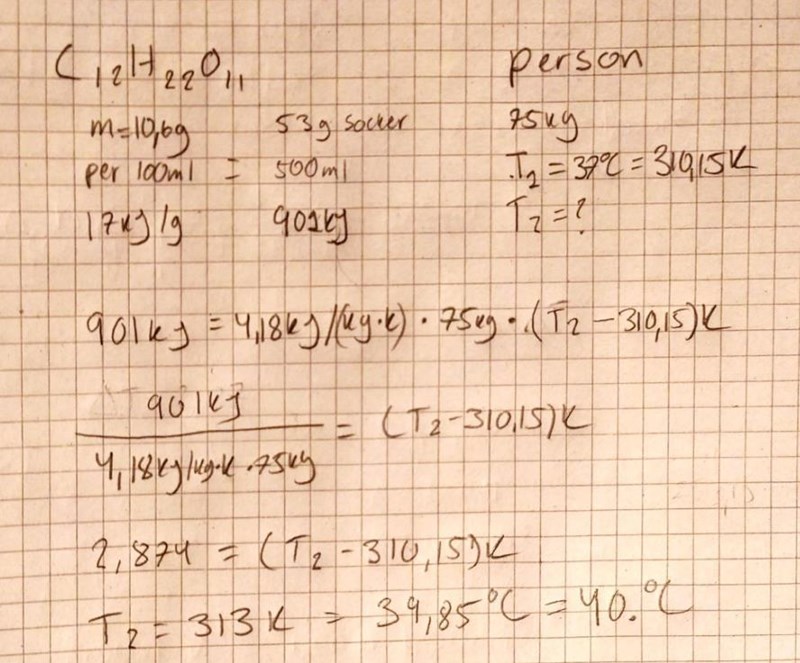 C₁₂H₂₂O₁₁ person
m=10,6g 53g socker 75kg
per 100ml = 500ml T₂=37°C=310,15K
17kJ/g 901kJ T₂=?
901kJ = 4,18kJ/(kg·K) · 75kg · (T₂ - 310,15)K
901kJ
4,18kJ/kg·K · 75kg = (T₂-310,15)K
2,874 = (T₂ - 310,15)K
T₂ = 313K = 39,85°C = 40.°C